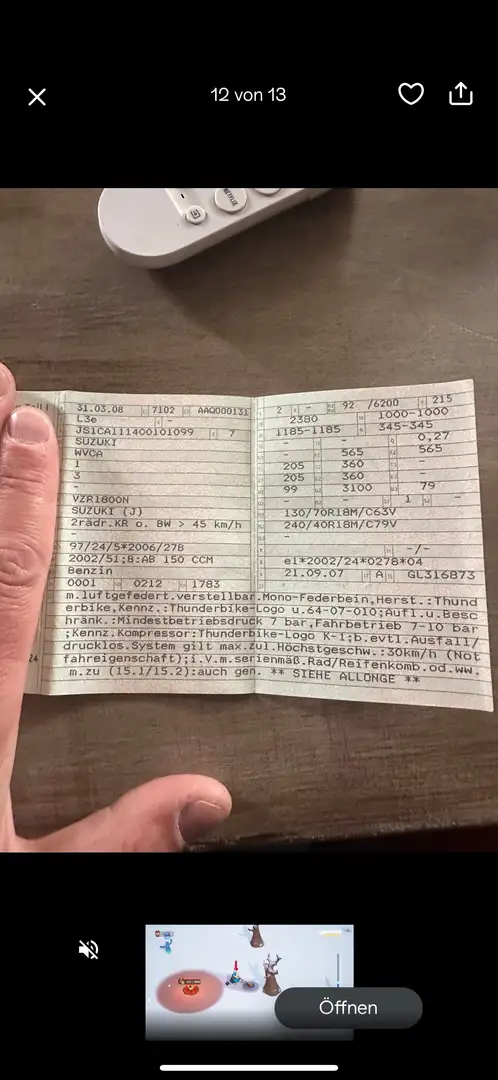 12 von 13
NETFLIX
31.03.08 7102 AAQ000131
L3e -
JS1CA111400101099 7
SUZUKI
WVCA
1
3
-
VZR1800N
SUZUKI (J)
2rädr.KR o. BW > 45 km/h
-
97/24/5*2006/27B
2002/51;8:AB 150 CCM
Benzin
0001 0212 1783
2 - 92 /6200 215
2380 1000-1000
1185-1185 345-345
- - 0,27
- 565 565
205 360 -
205 360 -
99 3100 79
- - 1 -
130/70R18M/C63V
240/40R18M/C79V
- -/-
e1*2002/24*0278*04
21.09.07 A GL316873
m.luftgefedert.verstellbar.Mono-Federbein,Herst.:Thund
erbike,Kennz.:Thunderbike-Logo u.64-07-010;Aufl.u.Besc
hränk.:Mindestbetriebsdruck 7 bar,Fahrbetrieb 7-10 bar
;Kennz.Kompressor:Thunderbike-Logo K-1;b.evtl.Ausfall/
drucklos.System gilt max.zul.Höchstgeschw.:30km/h (Not
fahreigenschaft);i.V.m.serienmäß.Rad/Reifenkomb.od.ww.
m.zu (15.1/15.2):auch gen. ** SIEHE ALLONGE **
Öffnen